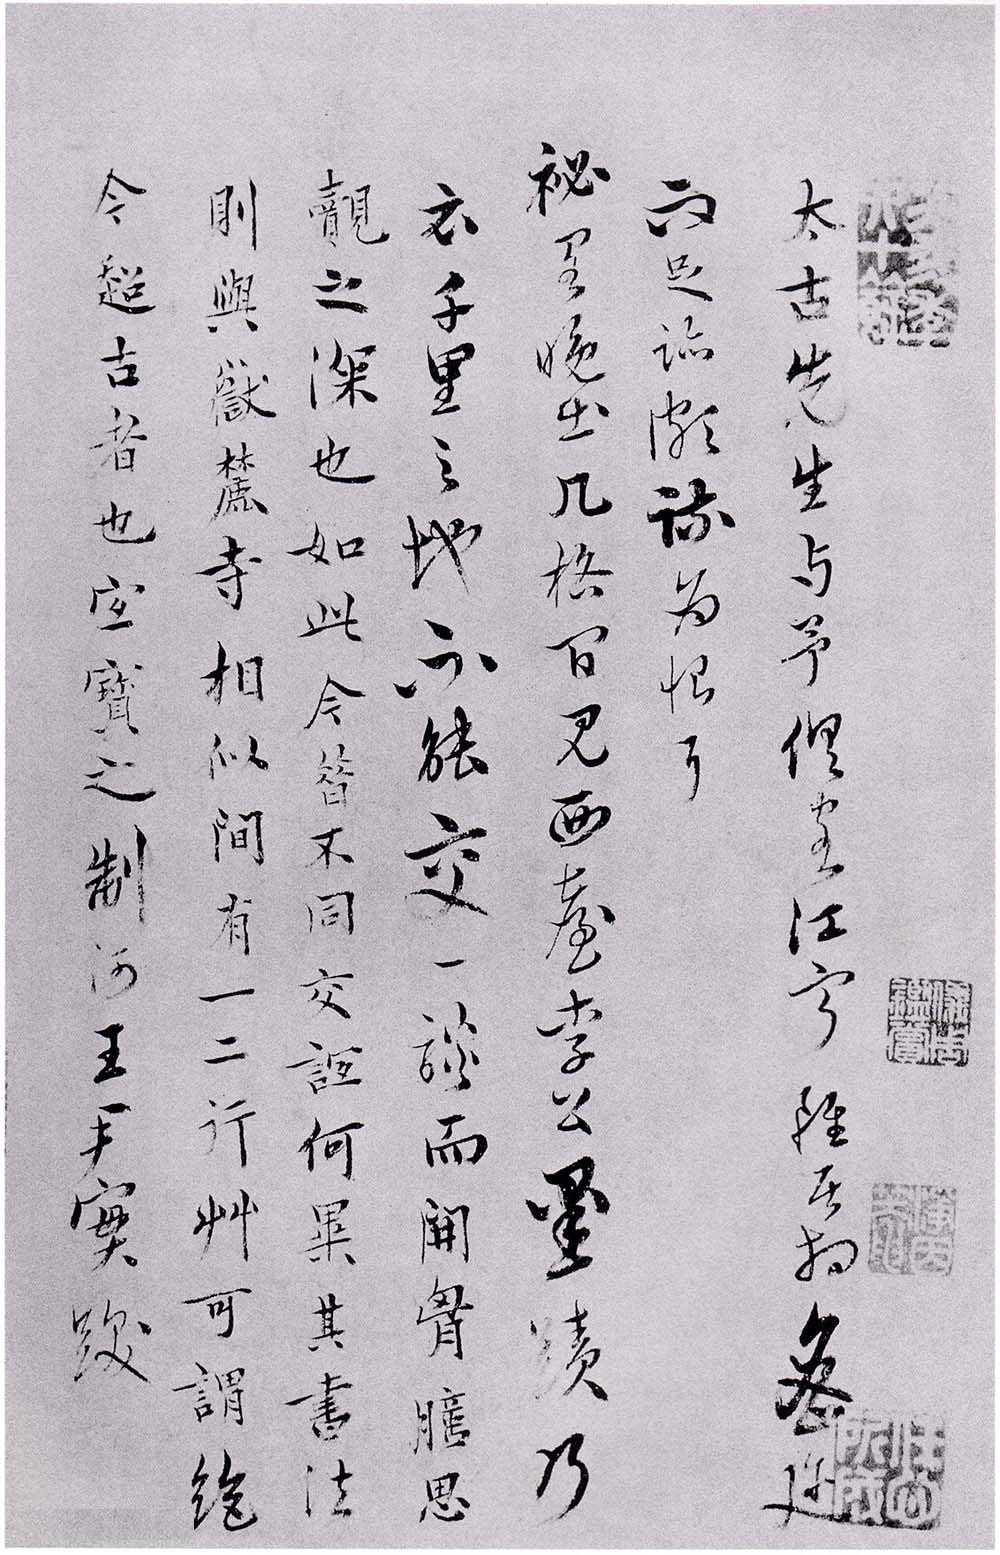 太古先生与予俱客江寧雖居相
而足跡
為恨耳
秘置晚出几格間見西臺李公墨蹟乃
衣千里之地不能交一談而開胷臆思
覿之深也如此今昔不同交誼何異其書法
則與嶽麓寺相似間有一二行艸可謂絶
今超古者也宜寶之制河王
寅跋